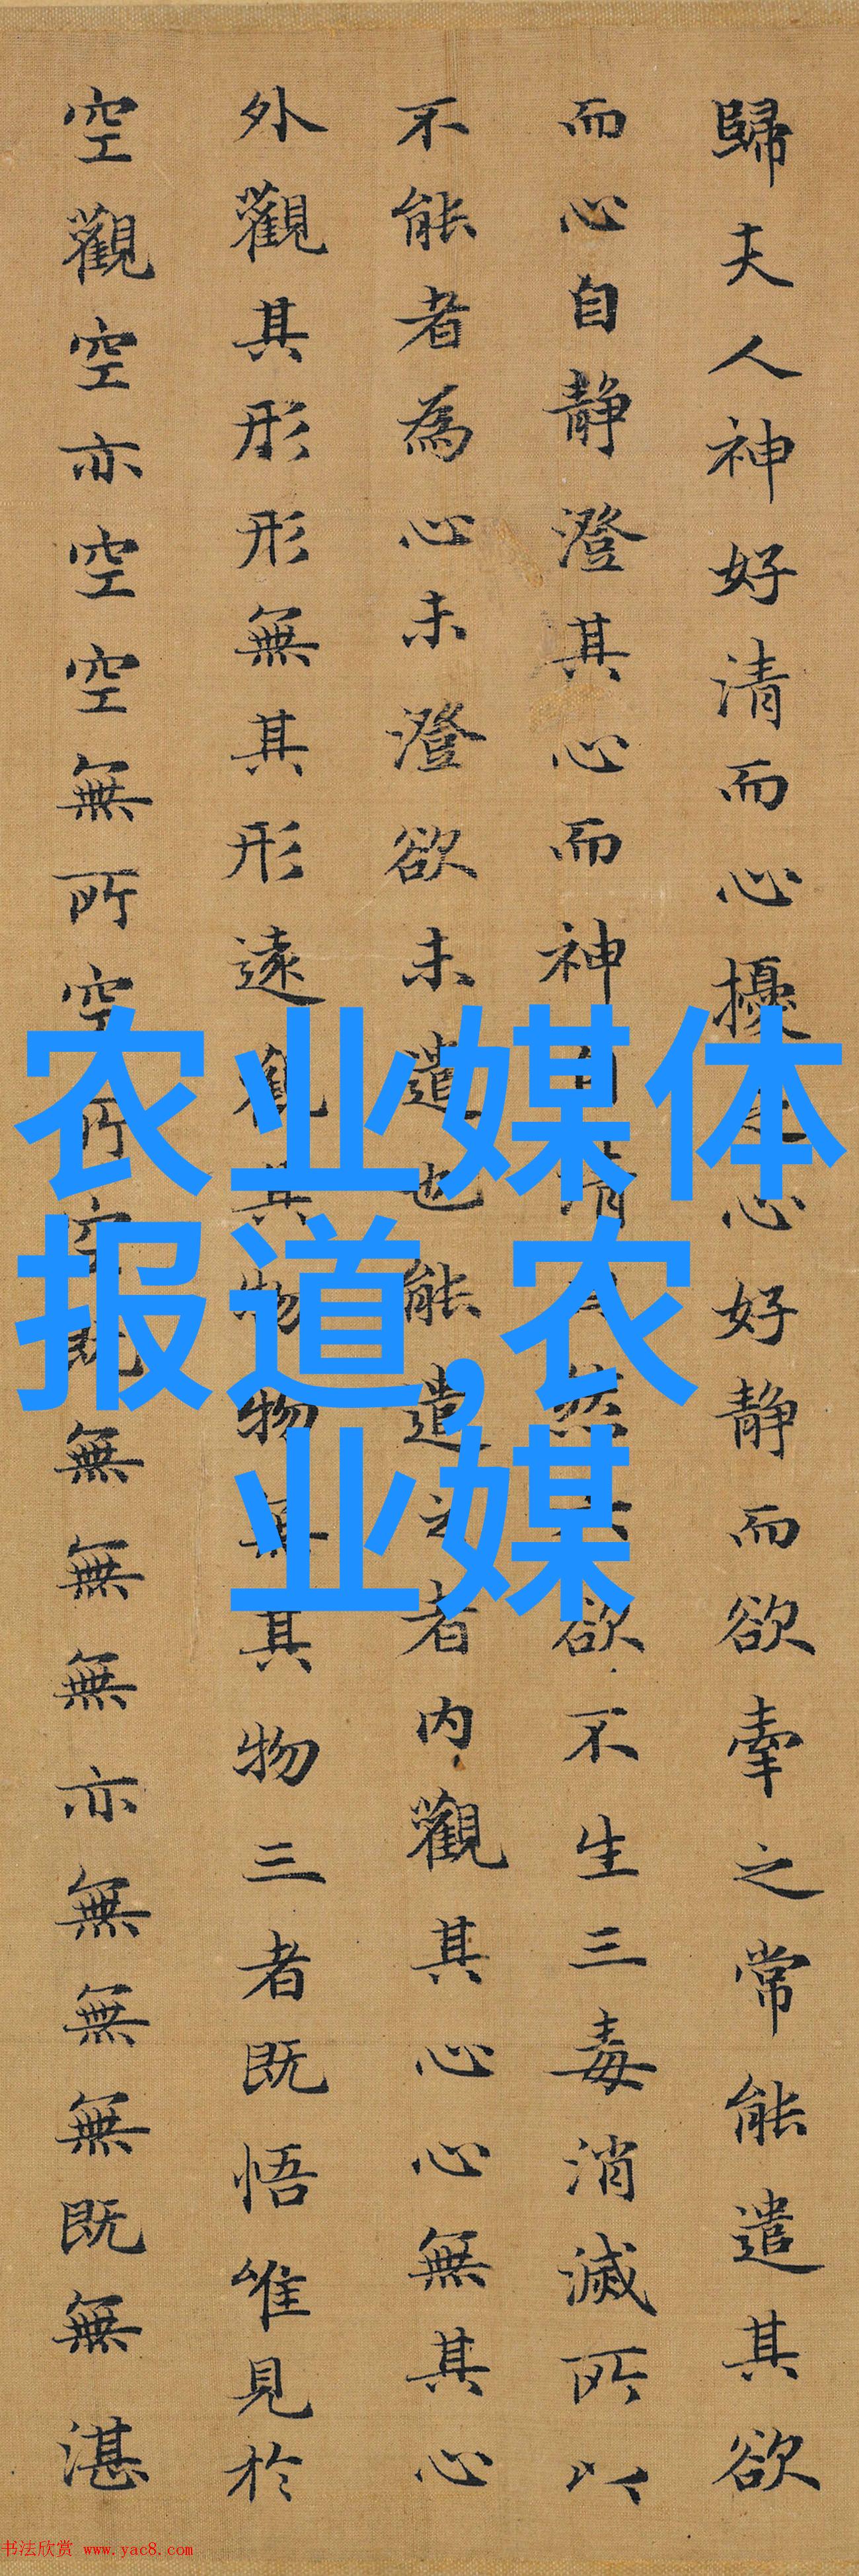 歸夫人神好清而心擾之心好静而欲牽之常能遣其欲
而心自静澄其心而神自清自然六欲不生三毒消滅所以
不能者為心未澄欲未遣也能遣之者内觀其心心無其心
外觀其形形無其形遠觀其物物無其物三者既悟唯見於
空觀空亦空空無所空所空既無無無亦無無無既無湛
农业媒体
报道,农
业媒
书法欣赏 www.yac8.com